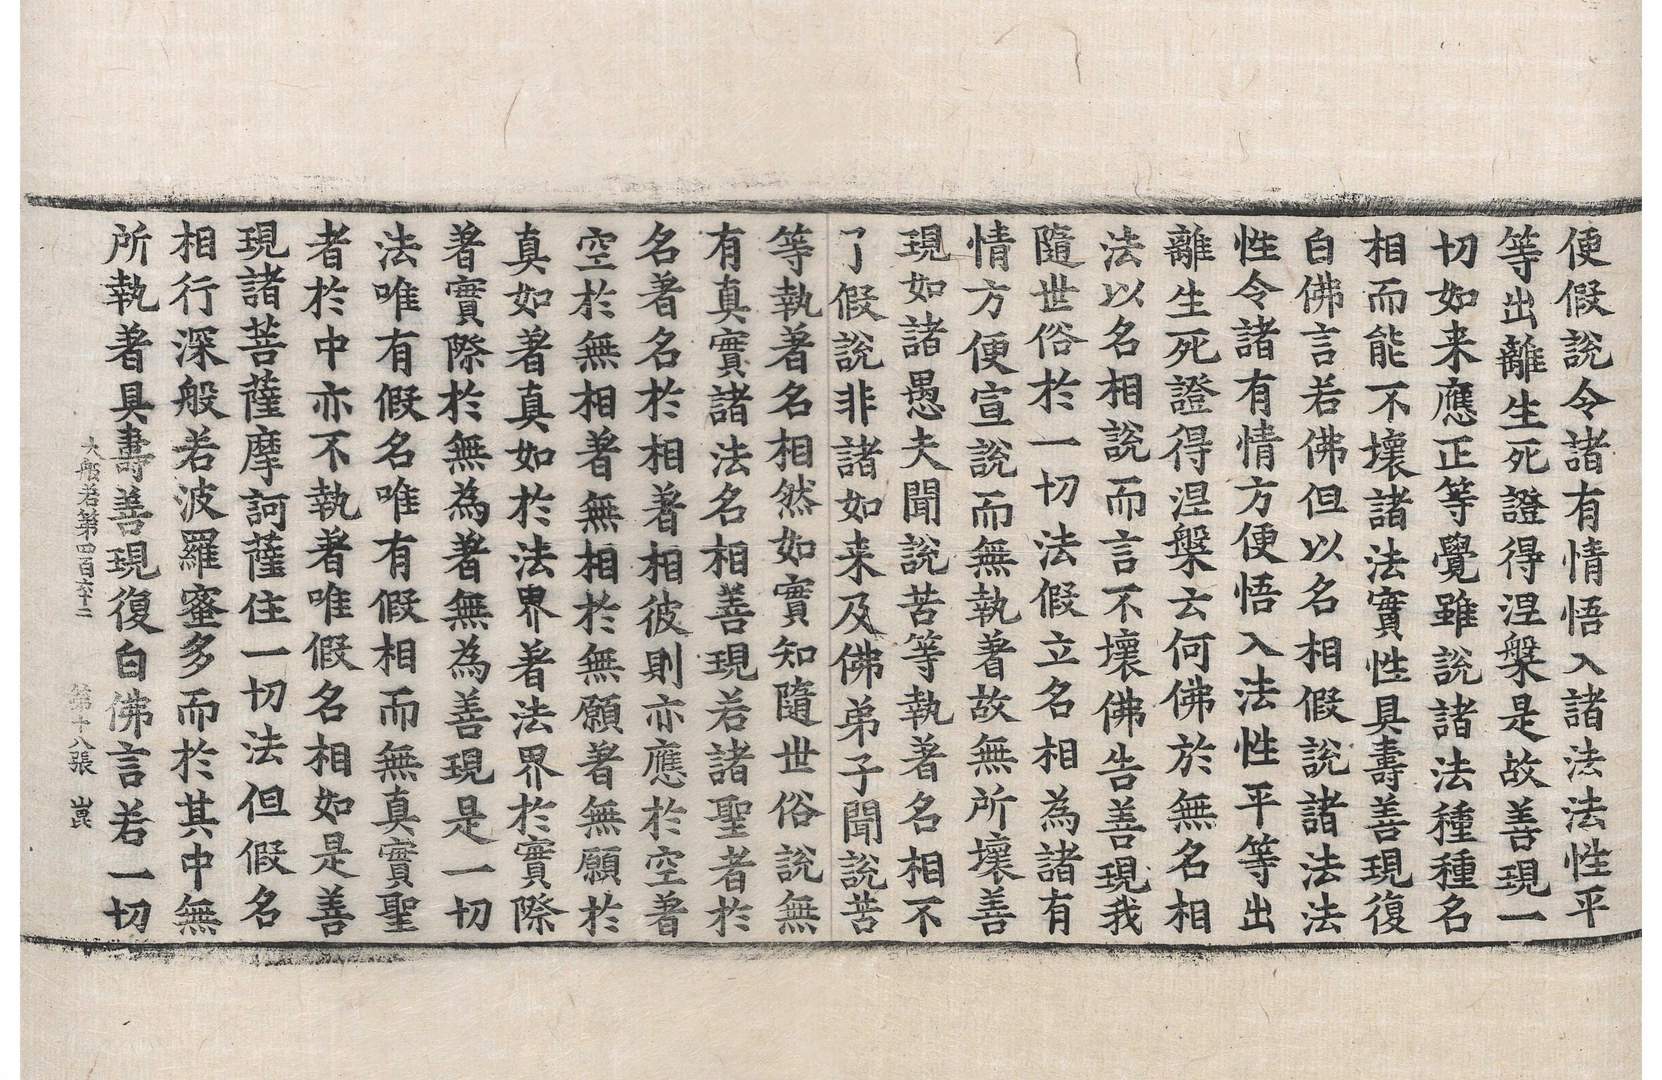 便假說令諸有情悟入諸法法性平
等出離生死證得涅槃是故善現一
切如来應正等覺雖說諸法種種名
相而能不壞諸法實性具壽善現復
白佛言若佛但以名相假說諸法法
性令諸有情方便悟入法性平等出
離生死證得涅槃云何佛於無名相
法以名相說而言不壞佛告善現我
隨世俗於一切法假立名相為諸有
情方便宣說而無執著故無所壞善
現如諸愚夫聞說苦等執著名相不
了假說非諸如来及佛弟子聞說苦
等執著名相然如實知隨世俗說無
有真實諸法名相善現若諸聖者於
名著名於相著相彼則亦應於空著
空於無相著無相於無願著無願於
真如著真如於法界著法界於實際
著實際於無為著無為善現是一切
法唯有假名唯有假相而無真實聖
者於中亦不執著唯假名相如是善
現諸菩薩摩訶薩住一切法但假名
相行深般若波羅蜜多而於其中無
所執著具壽善現復白佛言若一切
大般若第四百六十二 第十八張 崑